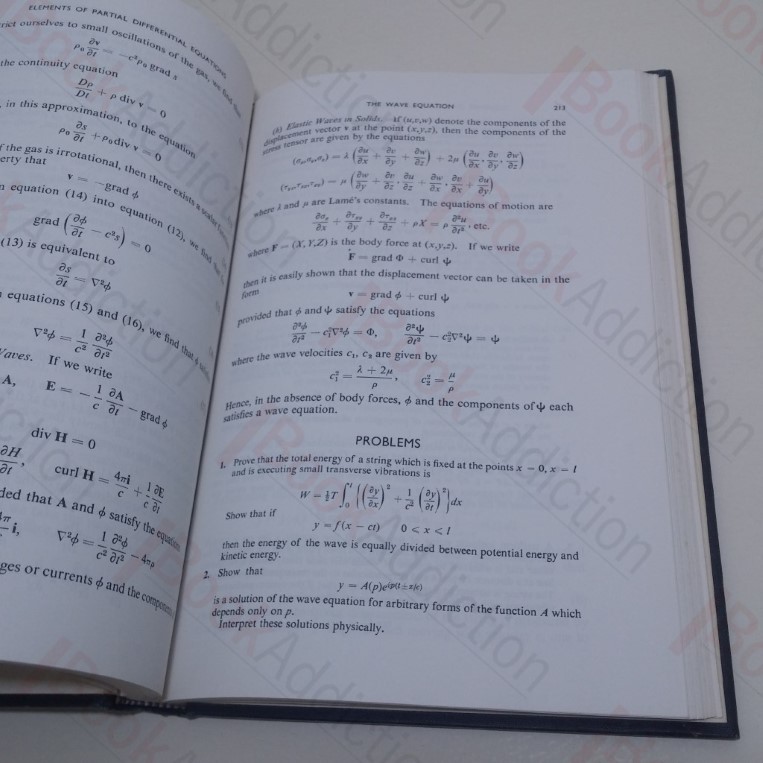 ELEMENTS OF PARTIAL DIFFERENTIAL EQUATIONS
rict ourselves to small oscillations of the gas, we find
ρ₀ ∂v/∂t = −c²ρ₀ grad s
the continuity equation
Dρ/Dt + ρ div v = 0
, in this approximation, to the equation
ρ₀ ∂s/∂t + ρ₀ div v = 0
f the gas is irrotational, then there exists a scalar
erty that
v = −grad ϕ
n equation (14) into equation (12), we find
grad (∂ϕ/∂t − c²s) = 0
(13) is equivalent to
∂s/∂t = ∇²ϕ
equations (15) and (16), we find that ϕ
∇²ϕ = 1/c² ∂²ϕ/∂t²
Waves. If we write
A, E = − 1/c ∂A/∂t − grad ϕ
div H = 0
∂H/∂t, curl H = 4πi/c + 1/c ∂E/∂t
ded that A and ϕ satisfy the equations
4π/ i, ∇²ϕ = 1/c² ∂²ϕ/∂t² − 4πρ
ges or currents ϕ and the components
THE WAVE EQUATION 213
(h) Elastic Waves in Solids. If (u,v,w) denote the components of the
displacement vector v at the point (x,y,z), then the components of the
stress tensor are given by the equations
(σₓ,σᵧ,σ_z) = λ (∂u/∂x + ∂v/∂y + ∂w/∂z) + 2μ (∂u/∂x, ∂v/∂y, ∂w/∂z)
= μ (∂w/∂y + ∂v/∂z, ∂u/∂z + ∂w/∂x, ∂v/∂x + ∂u/∂y)
where λ and μ are Lamé's constants. The equations of motion are
∂σₓ/∂x + ∂τₓᵧ/∂y + ∂τₓ_z/∂z + ρX = ρ ∂²u/∂t², etc.
where F = (X,Y,Z) is the body force at (x,y,z). If we write
F = grad Φ + curl ψ
then it is easily shown that the displacement vector can be taken in the
form
v = grad ϕ + curl ψ
provided that ϕ and ψ satisfy the equations
∂²ϕ/∂t² − c₁²∇²ϕ = Φ, ∂²ψ/∂t² − c₂²∇²ψ = ψ
where the wave velocities c₁, c₂ are given by
c₁² = (λ + 2μ)/ρ, c₂² = μ/ρ
Hence, in the absence of body forces, ϕ and the components of ψ each
satisfies a wave equation.
PROBLEMS
1. Prove that the total energy of a string which is fixed at the points x = 0, x = l
and is executing small transverse vibrations is
W = ½T ∫₀ˡ {(∂y/∂x)² + 1/c² (∂y/∂t)²} dx
Show that if
y = f(x − ct) 0 < x < l
then the energy of the wave is equally divided between potential energy and
kinetic energy.
2. Show that
y = A(p)e^{ip(t±x/c)}
is a solution of the wave equation for arbitrary forms of the function A which
depends only on p.
Interpret these solutions physically.
BookAddiction